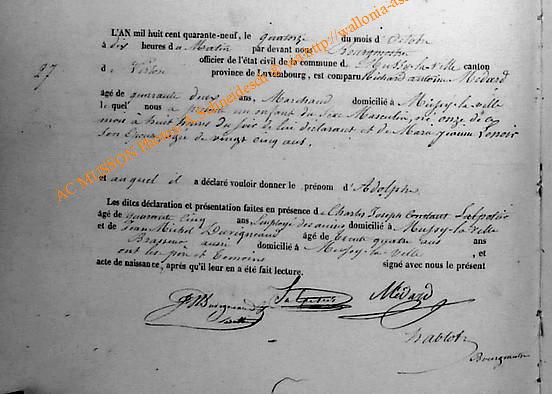 L'AN mil huit cent quarante-neuf, le quatorze du mois d'Octobre
à dix heures du Matin par devant nous Bourgmestre
officier de l'état civil de la commune de Mussy-la-ville canton
27
de Virton province de Luxembourg, est comparu Richard antoine Médard
âgé de quarante deux ans, Marchand domicilié à Mussy-la-ville
lequel nous a présenté un enfant du sexe Masculin, né, onze de ce
mois à huit heures du soir de lui déclarant et de Marie jeanne Lenoir
son Epouse âgée de vingt cinq ans.
et auquel il a déclaré vouloir donner le prénom d'Adolphe
Les dites déclaration et présentation faites en présence de Charles Joseph Constant
âgé de quarante Cinq ans, employé des domicilié à Mussy-la-Ville
et de Jean Michel âgé de trente quatre ans ans
Brasseur aussi domicilié à Mussy-la-Ville , et
ont les père et témoins signé avec nous le présent
acte de naissance, après qu'il leur en a été fait lecture.
Médard
Bourgmestre
AC MUSSON Photos A Schneidesch @ via http://wallonia-as